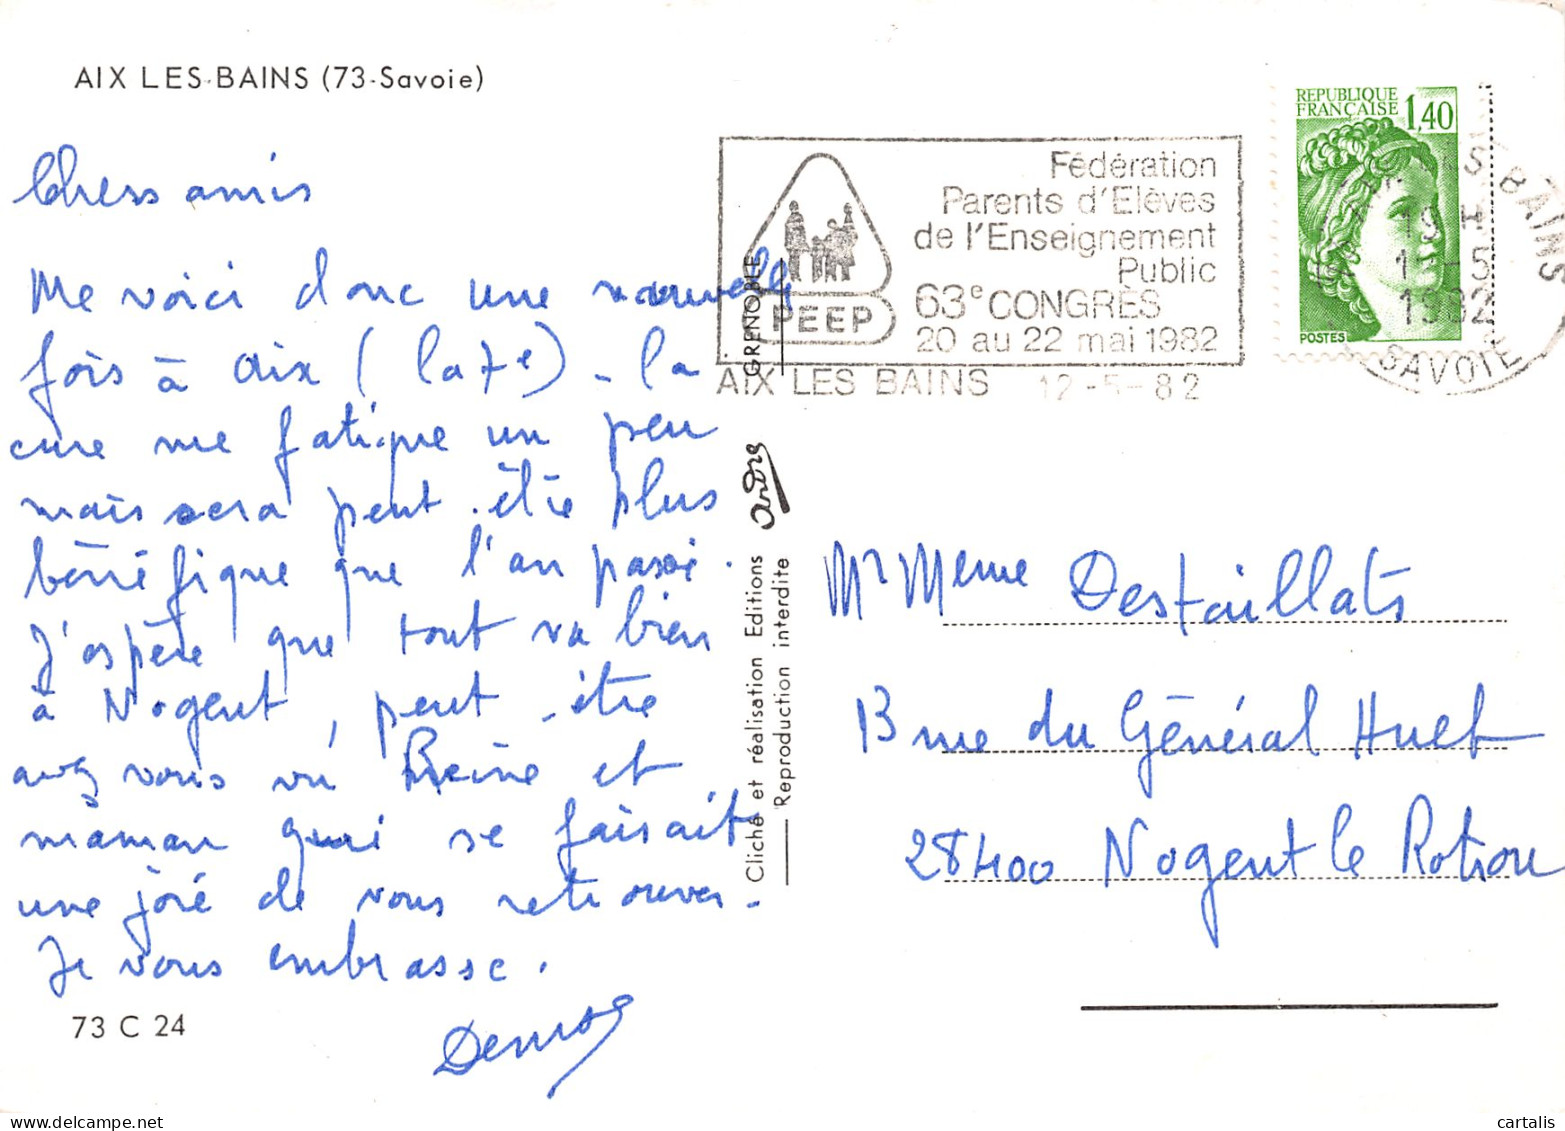 AIX LES-BAINS (73-Savoie)
Chers amis
Me voici donc une nouvelle
fois à Aix (la 7e) - la
cure me fatigue un peu
mais sera peut-être plus
bénéfique que l'an passé.
J'espère que tout va bien
à Nogent, peut-être
avez vous vu Reine et
maman qui se faisait
une joie de vous retrouver.
Je vous embrasse.
73 C 24
GRENOBLE
Cliché et réalisation Editions André
Reproduction interdite
Fédération
Parents d'Elèves
de l'Enseignement
Public
63e CONGRES
20 au 22 mai 1982
PEEP
AIX LES BAINS 12-5-82
REPUBLIQUE
FRANÇAISE 1,40
POSTES
BAINS
19 H
1982
SAVOIE
Mr Meme Destaillats
13 rue du Général Huet
28400 Nogent le Rotrou
cartalis